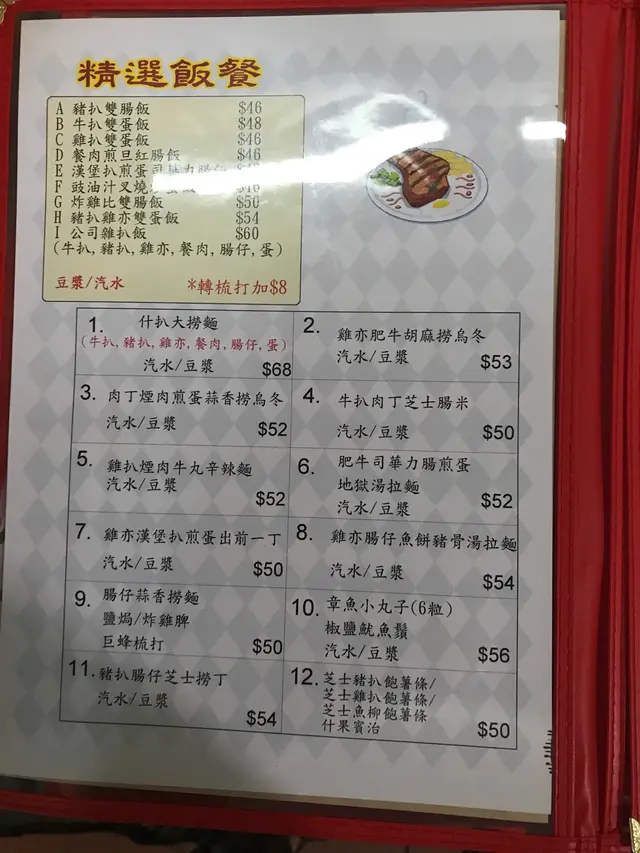 精選飯餐
A 豬扒雙腸飯 $46
B 牛扒雙蛋飯 $48
C 雞扒雙蛋飯 $46
D 餐肉煎旦紅腸飯 $46
E 漢堡扒煎蛋司華力腸飯
F 豉油汁叉燒 蛋飯 $46
G 炸雞比雙腸飯 $50
H 豬扒雞亦雙蛋飯 $54
I 公司雜扒飯 $60
(牛扒,豬扒,雞亦,餐肉,腸仔,蛋)
豆漿/汽水 *轉梳打加$8
1. 什扒大撈麵
(牛扒,豬扒,雞亦,餐肉,腸仔,蛋)
汽水/豆漿
$68
2. 雞亦肥牛胡麻撈烏冬
汽水/豆漿
$53
3. 肉丁煙肉煎蛋蒜香撈烏冬
汽水/豆漿
$52
4. 牛扒肉丁芝士腸米
汽水/豆漿
$50
5. 雞扒煙肉牛丸辛辣麵
汽水/豆漿
$52
6. 肥牛司華力腸煎蛋
地獄湯拉麵
汽水/豆漿
$52
7. 雞亦漢堡扒煎蛋出前一丁
汽水/豆漿
$50
8. 雞亦腸仔魚餅豬骨湯拉麵
汽水/豆漿
$54
9. 腸仔蒜香撈麵
鹽焗/炸雞脾
巨蜂梳打
$50
10. 章魚小丸子(6粒)
椒鹽魷魚鬚
汽水/豆漿
$56
11. 豬扒腸仔芝士撈丁
汽水/豆漿
$54
12. 芝士豬扒飽薯條/
芝士雞扒飽薯條/
芝士魚柳飽薯條
什果賓治
$50